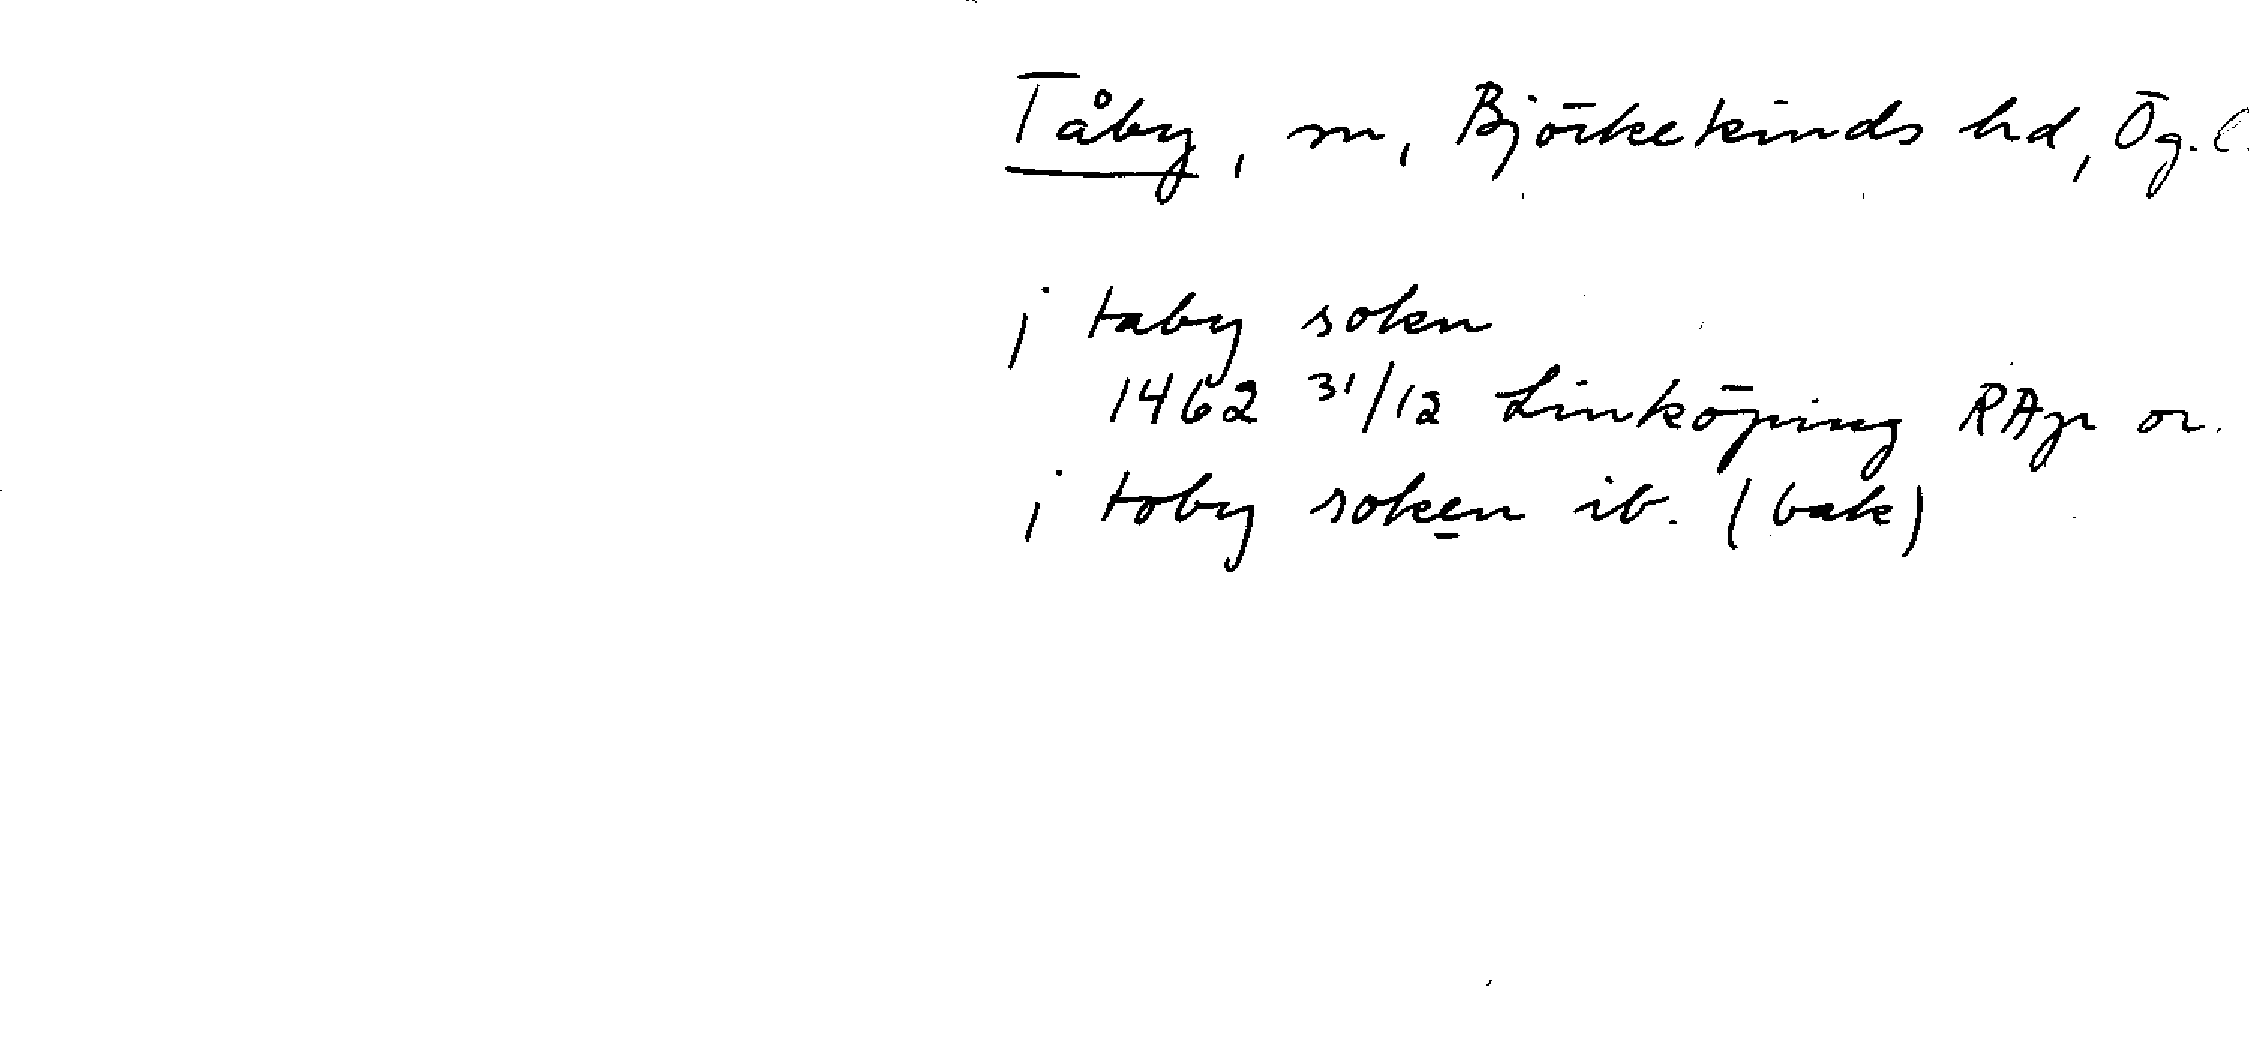 Tåby, sn, Björkekinds hd, Ög. l.
j taby sokn
1462 31/12 Linköping RAp or.
j toby soken ib. (bak)